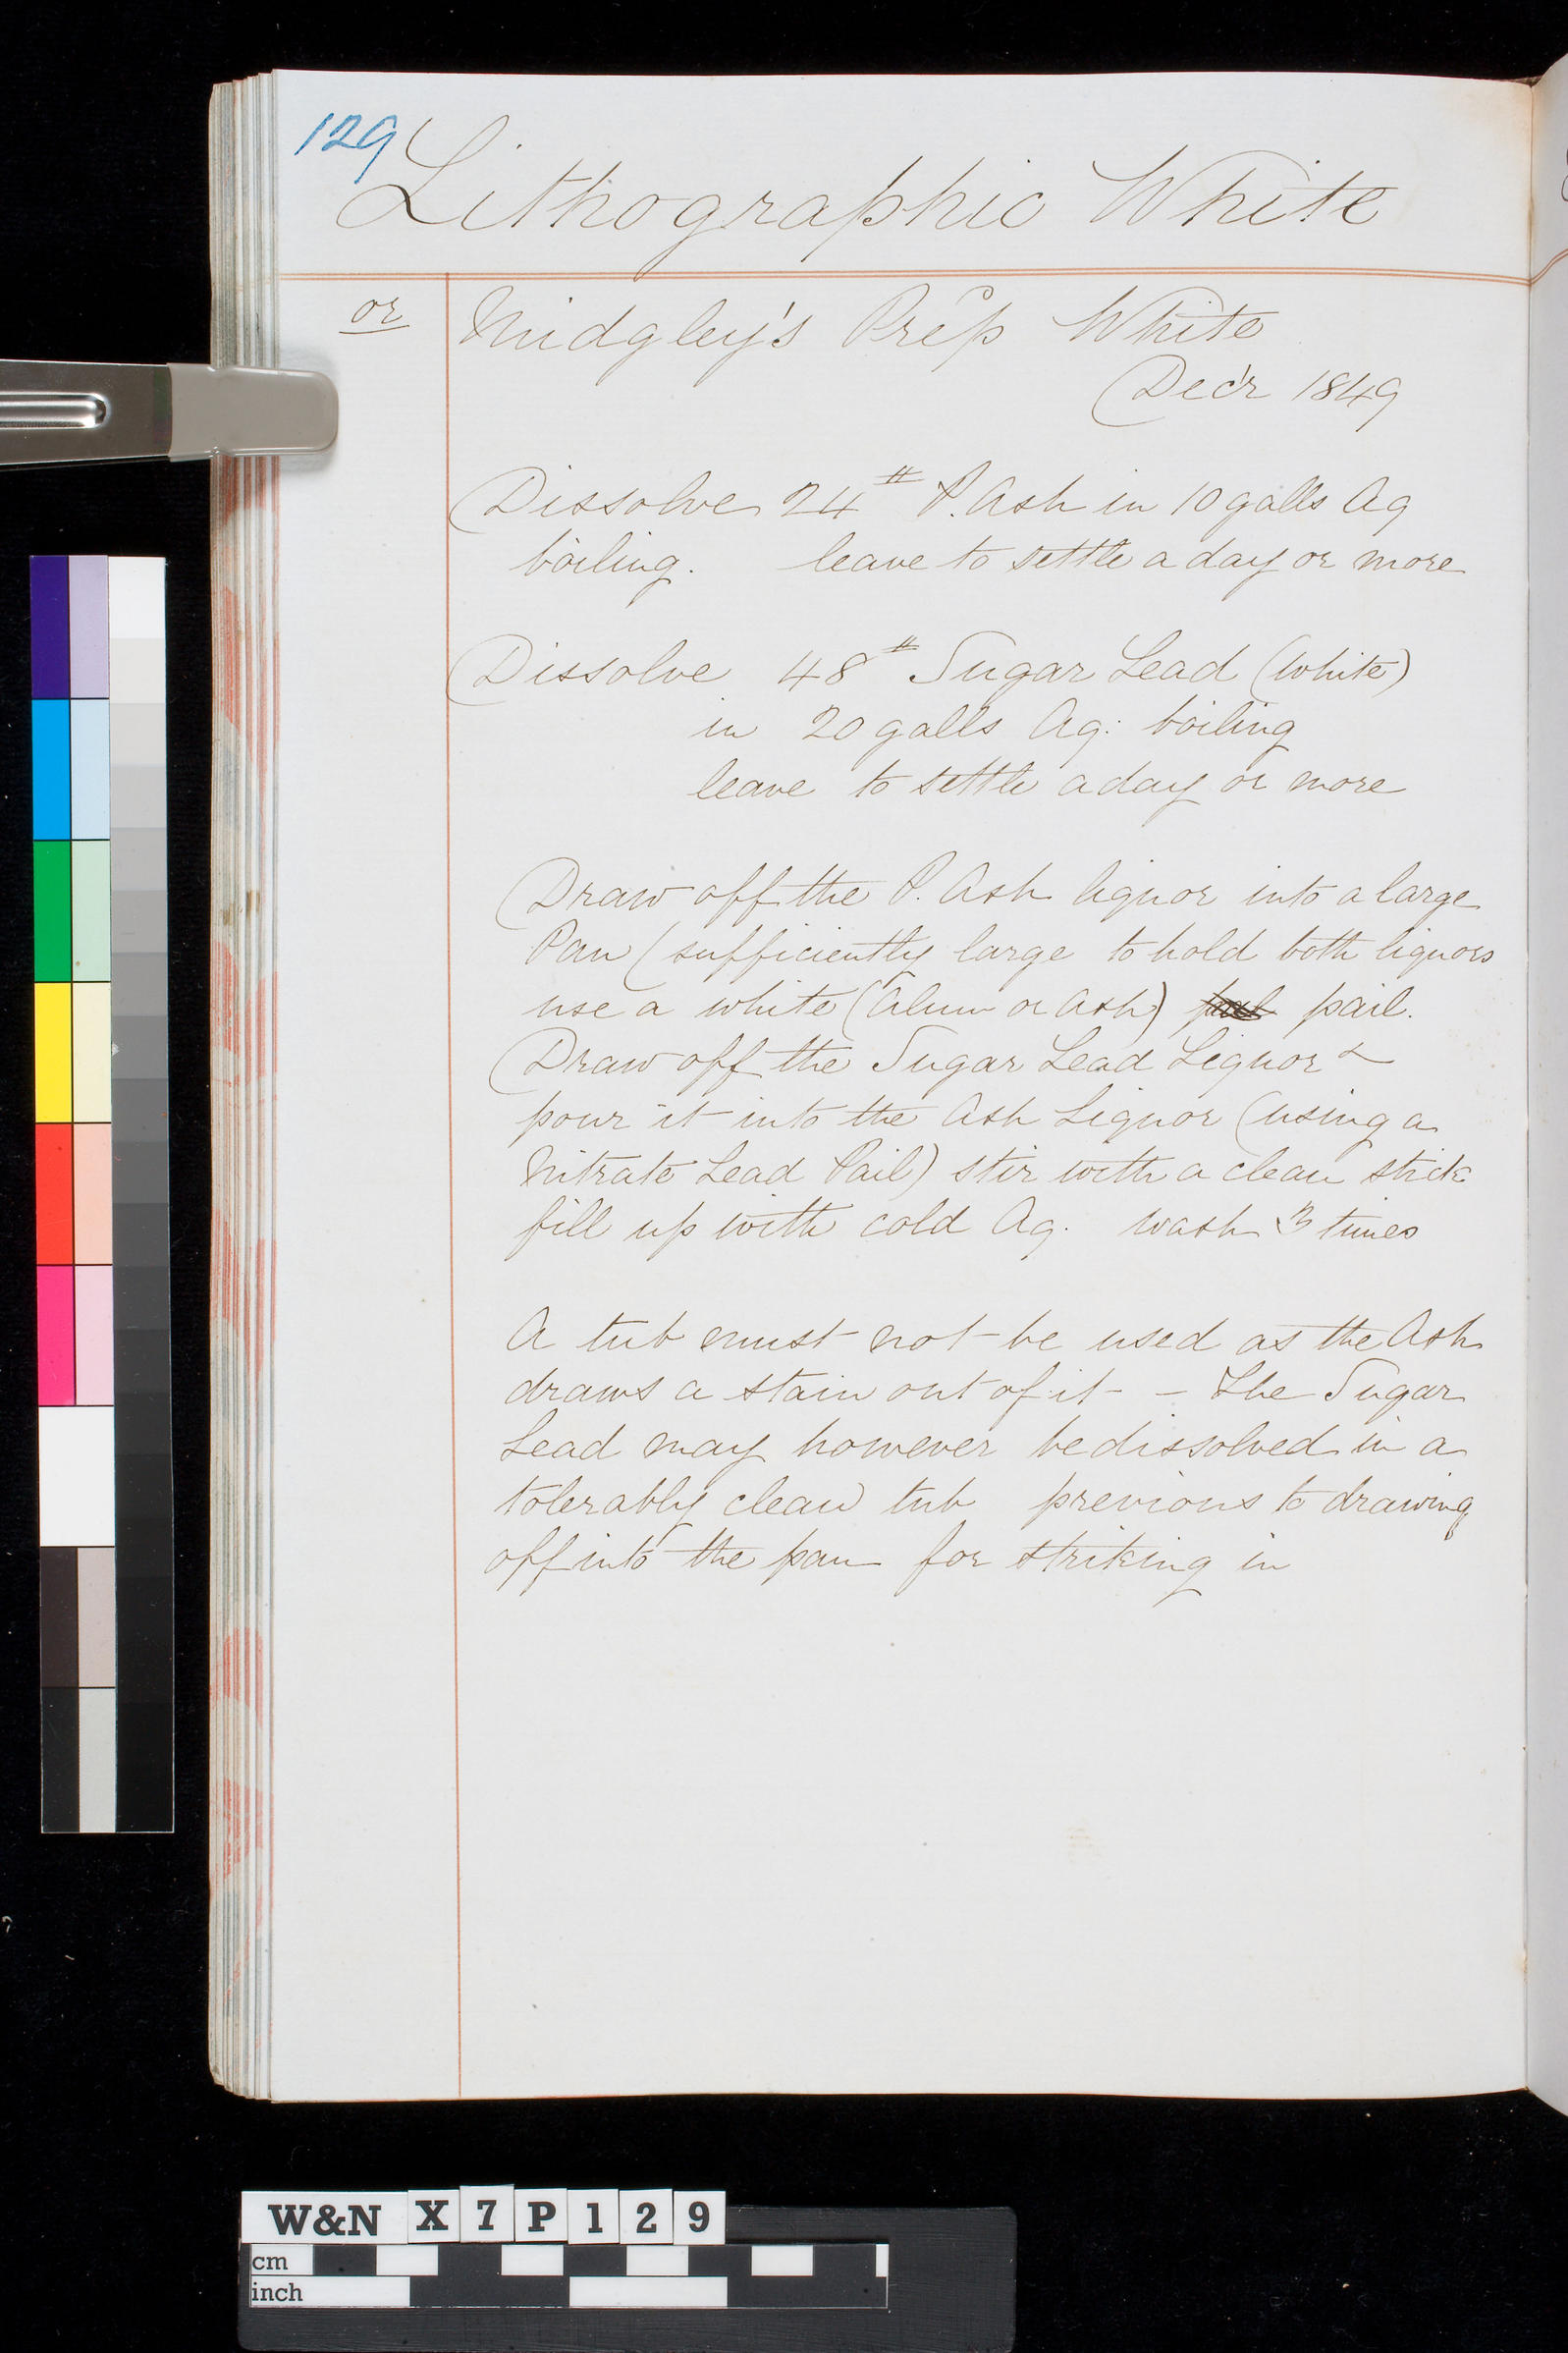 129
Lithographic White
or Midgley's Prep White
Dec'r 1849
Dissolve 24# P. Ash in 10 galls Aq
boiling. leave to settle a day or more
Dissolve 48# Sugar Lead (White)
in 20 galls Aq: boiling
leave to settle a day or more
Draw off the P. Ash liquor into a large
Pan (sufficiently large to hold both liquors
use a white (Alum or Ash) pail.
Draw off the Sugar Lead Liquor &
pour it into the Ash Liquor (using a
Nitrate Lead Pail) stir with a clean stick
fill up with cold Aq. wash 3 times
A tub must not be used as the Ash
draws a stain out of it - The Sugar
Lead may however be dissolved in a
tolerably clean tub previous to drawing
off into the pan for striking in
W&N X 7 P 1 2 9
cm
inch